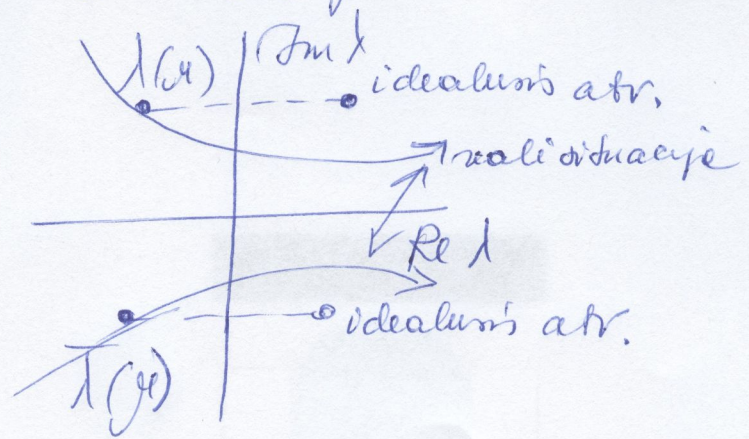 λ(μ)
Im λ
idealusis atv.
reali situacija
Re λ
idealusis atv.
λ̄(μ)